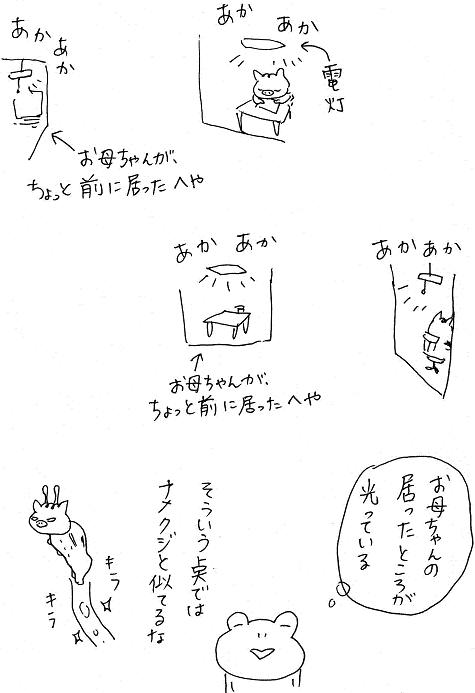 あか
あか
あか
あか
電灯
お母ちゃんが、
ちょっと前に居ったへや
あか
あか
あか
あか
お母ちゃんが、
ちょっと前に居ったへや
お母ちゃんの
居ったところが
光っている
そういう点では
ナメクジと似てるな
キラ
キラ